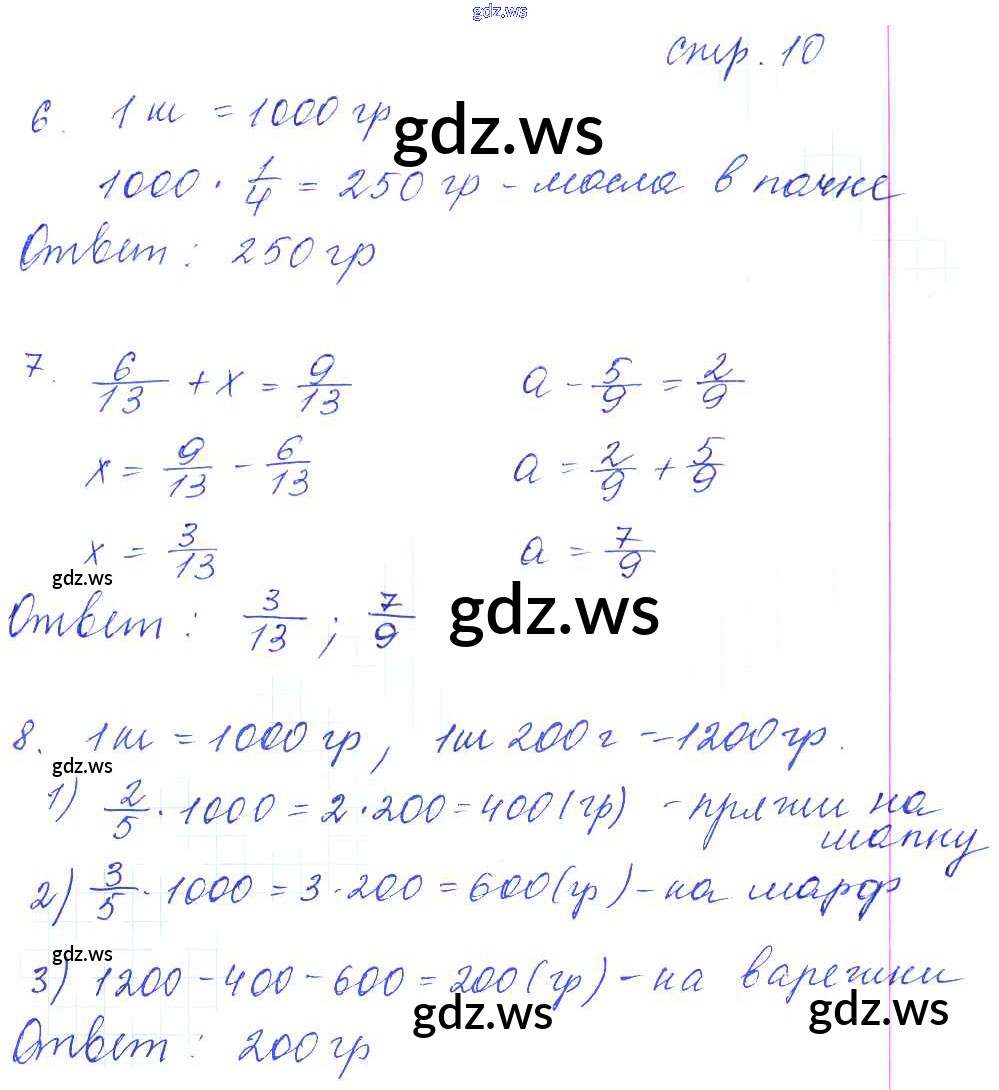 gdz.ws
стр. 10
6. 1 ш = 1000 гр
gdz.ws
1000 · 1/4 = 250 гр - масла в пачке
Ответ : 250 гр
7. 6/13 + x = 9/13 a - 5/9 = 2/9
x = 9/13 - 6/13 a = 2/9 + 5/9
x = 3/13 a = 7/9
gdz.ws
gdz.ws
Ответ : 3/13 ; 7/9
8. 1 ш = 1000 гр, 1 ш 200 г - 1200 гр.
gdz.ws
1) 2/5 · 1000 = 2 · 200 = 400 (гр) - пряжи на
шапку
2) 3/5 · 1000 = 3 · 200 = 600 (гр) - на шарф
gdz.ws
3) 1200 - 400 - 600 = 200 (гр) - на варешки
gdz.ws
gdz.ws
Ответ : 200 гр